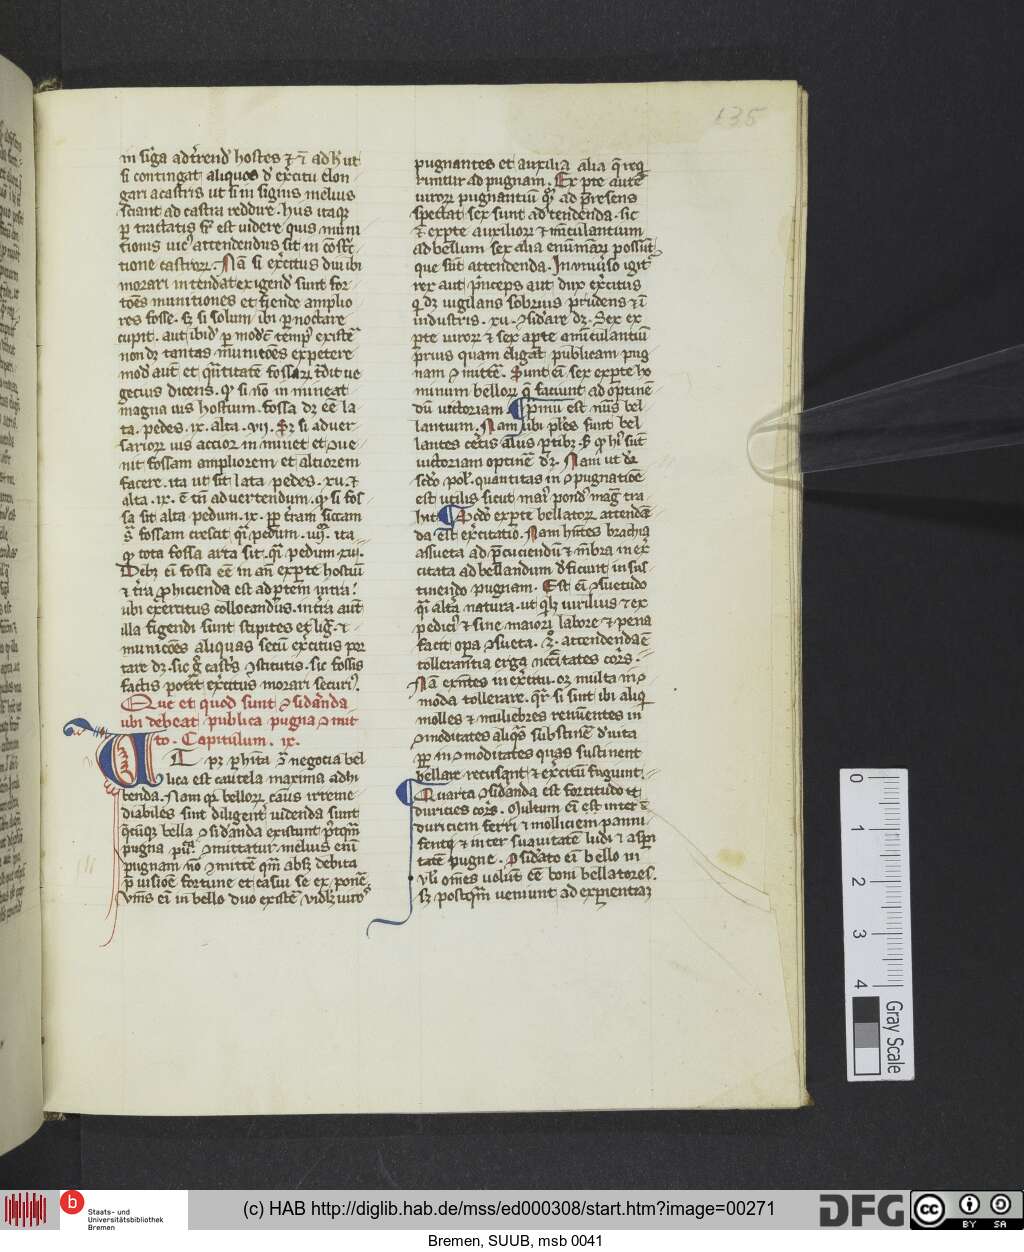 135
in sig̅a ad t̅rend̅ hostes ⁊ i̅ ad h̅ ut
si contingat aliquos d̅ ex̅citu elon
gari a castris ut si in signis melius
sciant ad castra reddire. hiis itaq̅
p̅ tractatis s̅ est videre quis muni
tionis
tione castror̅. Na̅ si ex̅citus diu ibi
morari intendat exigend̅ sunt for
to̅es munitiones et fiende amplio
res fosse. s̅ si solum ibi p̅noctare
cupit. aut ibid̅ p̅ modic̅ temp̅ existe̅
non d̅z tantas munito̅es expetere
mod̅ aut̅ et q̅ntitate̅ fossar̅ t̅dit ue
gecius dicens. q̅ si no̅ inmineat
magna uis hostium. fossa d̅z e̅e la
ta. pedes. ix. alta. vii. S̅z si adver
sarior̅ uis accior inminet et
nit fossam ampliorem et altiorem
facere. ita ut sit lata pedes. xii. ⁊
alta. ix. e̅ t̅n advertendum. q̅ si fos
sa sit alta pedum. ix. p̅p̅ t̅ram siccam
s̅ fossam crescit q̅i pedum. iiii. ita
q̅ tota fossa alta sit. q̅i pedum xiii.
Deb̅z ei̅ fossa e̅e in an̅ ex p̅te hostiu̅
⁊ t̅ra p̅hicienda est ad p̅tem intra.
ubi ex̅ercitus collocandus. in t̅ra aut̅
illa figendi sunt stipites ex lig̅. ⁊
munico̅es aliquas secu̅ ex̅citus por
tare d̅z. sic g̅ cast̅s 9stitutis. sic fossis
factis pot̅it ex̅citus morari securi9.
Que et quod sunt 9sid̅anda
ubi debeat publica pugna 9mit
to. Capitulum. ix.
bel
lica est cautela maxima adhi
benda. Nam q̅ bellor̅ casus irreme
diabiles sint diligent̅ videnda sunt
q̅cu̅q̅ bella 9sid̅anda existunt p̅usq̅m
pugna pu̅. 9mittatur. melius eni̅
pugnam no̅ 9mitte̅ q̅m absq̅ debita
p̅visio̅e fortune et casui se expone̅
bello duo existe̅ vid̅lz viro9
pugnantes et auxilia alia q̅ req̅
runtur ad pugnam. Ex p̅te aute̅
viror̅ pugnantiu̅ q̅ ad p̅resens
spectat sex sunt ad tendenda. sic
⁊ ex p̅te auxilior̅ ⁊ am̅iculantium
ad bellum sex alia enum̅ari possu̅t
que su̅t attendenda. In univ̅so igit̅
rex aut p̅nceps aut dux ex̅citus
q̅ d̅z vigilans sobrius prudens ⁊ i̅
industris. xii. 9sid̅are d̅z. Sex ex
p̅te viror̅ ⁊ sex a p̅te amiculantiu̅
p̅rius quam eligat publicam pug
nam 9mitte̅. Sunt ei̅ sex ex p̅te ho
minum bellor̅ q̅ faciunt ad optine̅
du̅ victoriam. Primu̅ est nu̅s bel
lantium. Nam ubi pl̅es sunt bel
lantes cet̅is aliis p̅tib̅z
victoriam optine̅ d̅z. Nam ut d̅r
sc̅do pol̅. quantitas in 9pugnatio̅e
est utilis sicut mai9 pond9 mag̅ tra
hit. Sc̅do ex p̅te bellator̅ attende̅
da est ex̅citatio. Nam h̅ntes brachia
assueta ad p̅cuciendu̅ ⁊ m̅bra inex̅
citata ad bellandum d̅ficiunt in sus
tinendo pugnam. Est ei̅ 9suetudo
q̅i alt̅a natura. ut q̅lz virilius ⁊ ex
pedici9 ⁊ sine maiori labore ⁊ pena
facit op̅a 9sueta. 3o. attendenda e̅
tollerantia erga nc̅c̅itates corp̅is.
Na̅ ex̅ntes in ex̅citu. o̅z multa in9
moda tollerare. q̅r si sint ibi aliq̅
molles ⁊ muliebres renue̅ntes in
9moditates aliq̅s sustine̅
p̅p̅ in9moditates quas sustinent
bellare recusant ⁊ ex̅citu̅ fugiunt.
Quarta 9sid̅anda est fortitudo et
duricies corp̅is. Multum ei̅ est inter̅
duriciem ferri ⁊ molliciem panni
⁊ inter suavitate̅ ludi ⁊ asp̅i
tate̅ pugne. 9sid̅ato ei̅ bello in
v̅li om̅es volu̅t e̅e boni bellatores.
s̅z postq̅m veniunt ad exp̅ientiaz
0
1
2
3
4
Gray Scale
b
Staats- und
Universitätsbibliothek
Bremen
(c) HAB http://diglib.hab.de/mss/ed000308/start.htm?image=00271
DFG
cc BY SA
Bremen, SUUB, msb 0041